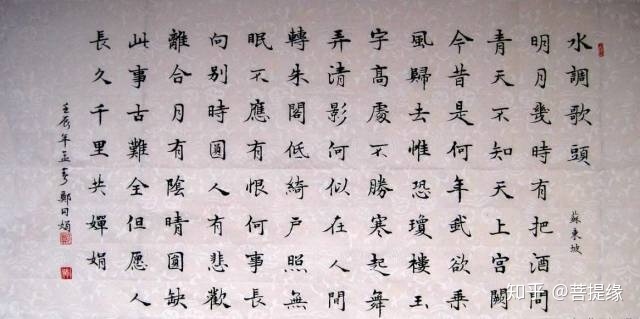 水調歌頭
蘇東坡
明月幾時有把酒問
青天不知天上宮闕
今昔是何年我欲乘
風歸去惟恐瓊樓玉
宇髙處不勝寒起舞
弄清影何似在人間
轉朱閣低綺戶照無
眠不應有恨何事長
向別時圓人有悲歡
離合月有陰晴圓缺
此事古難全但愿人
長久千里共嬋娟
壬辰年孟春鄭同娟
知乎 @菩提缘